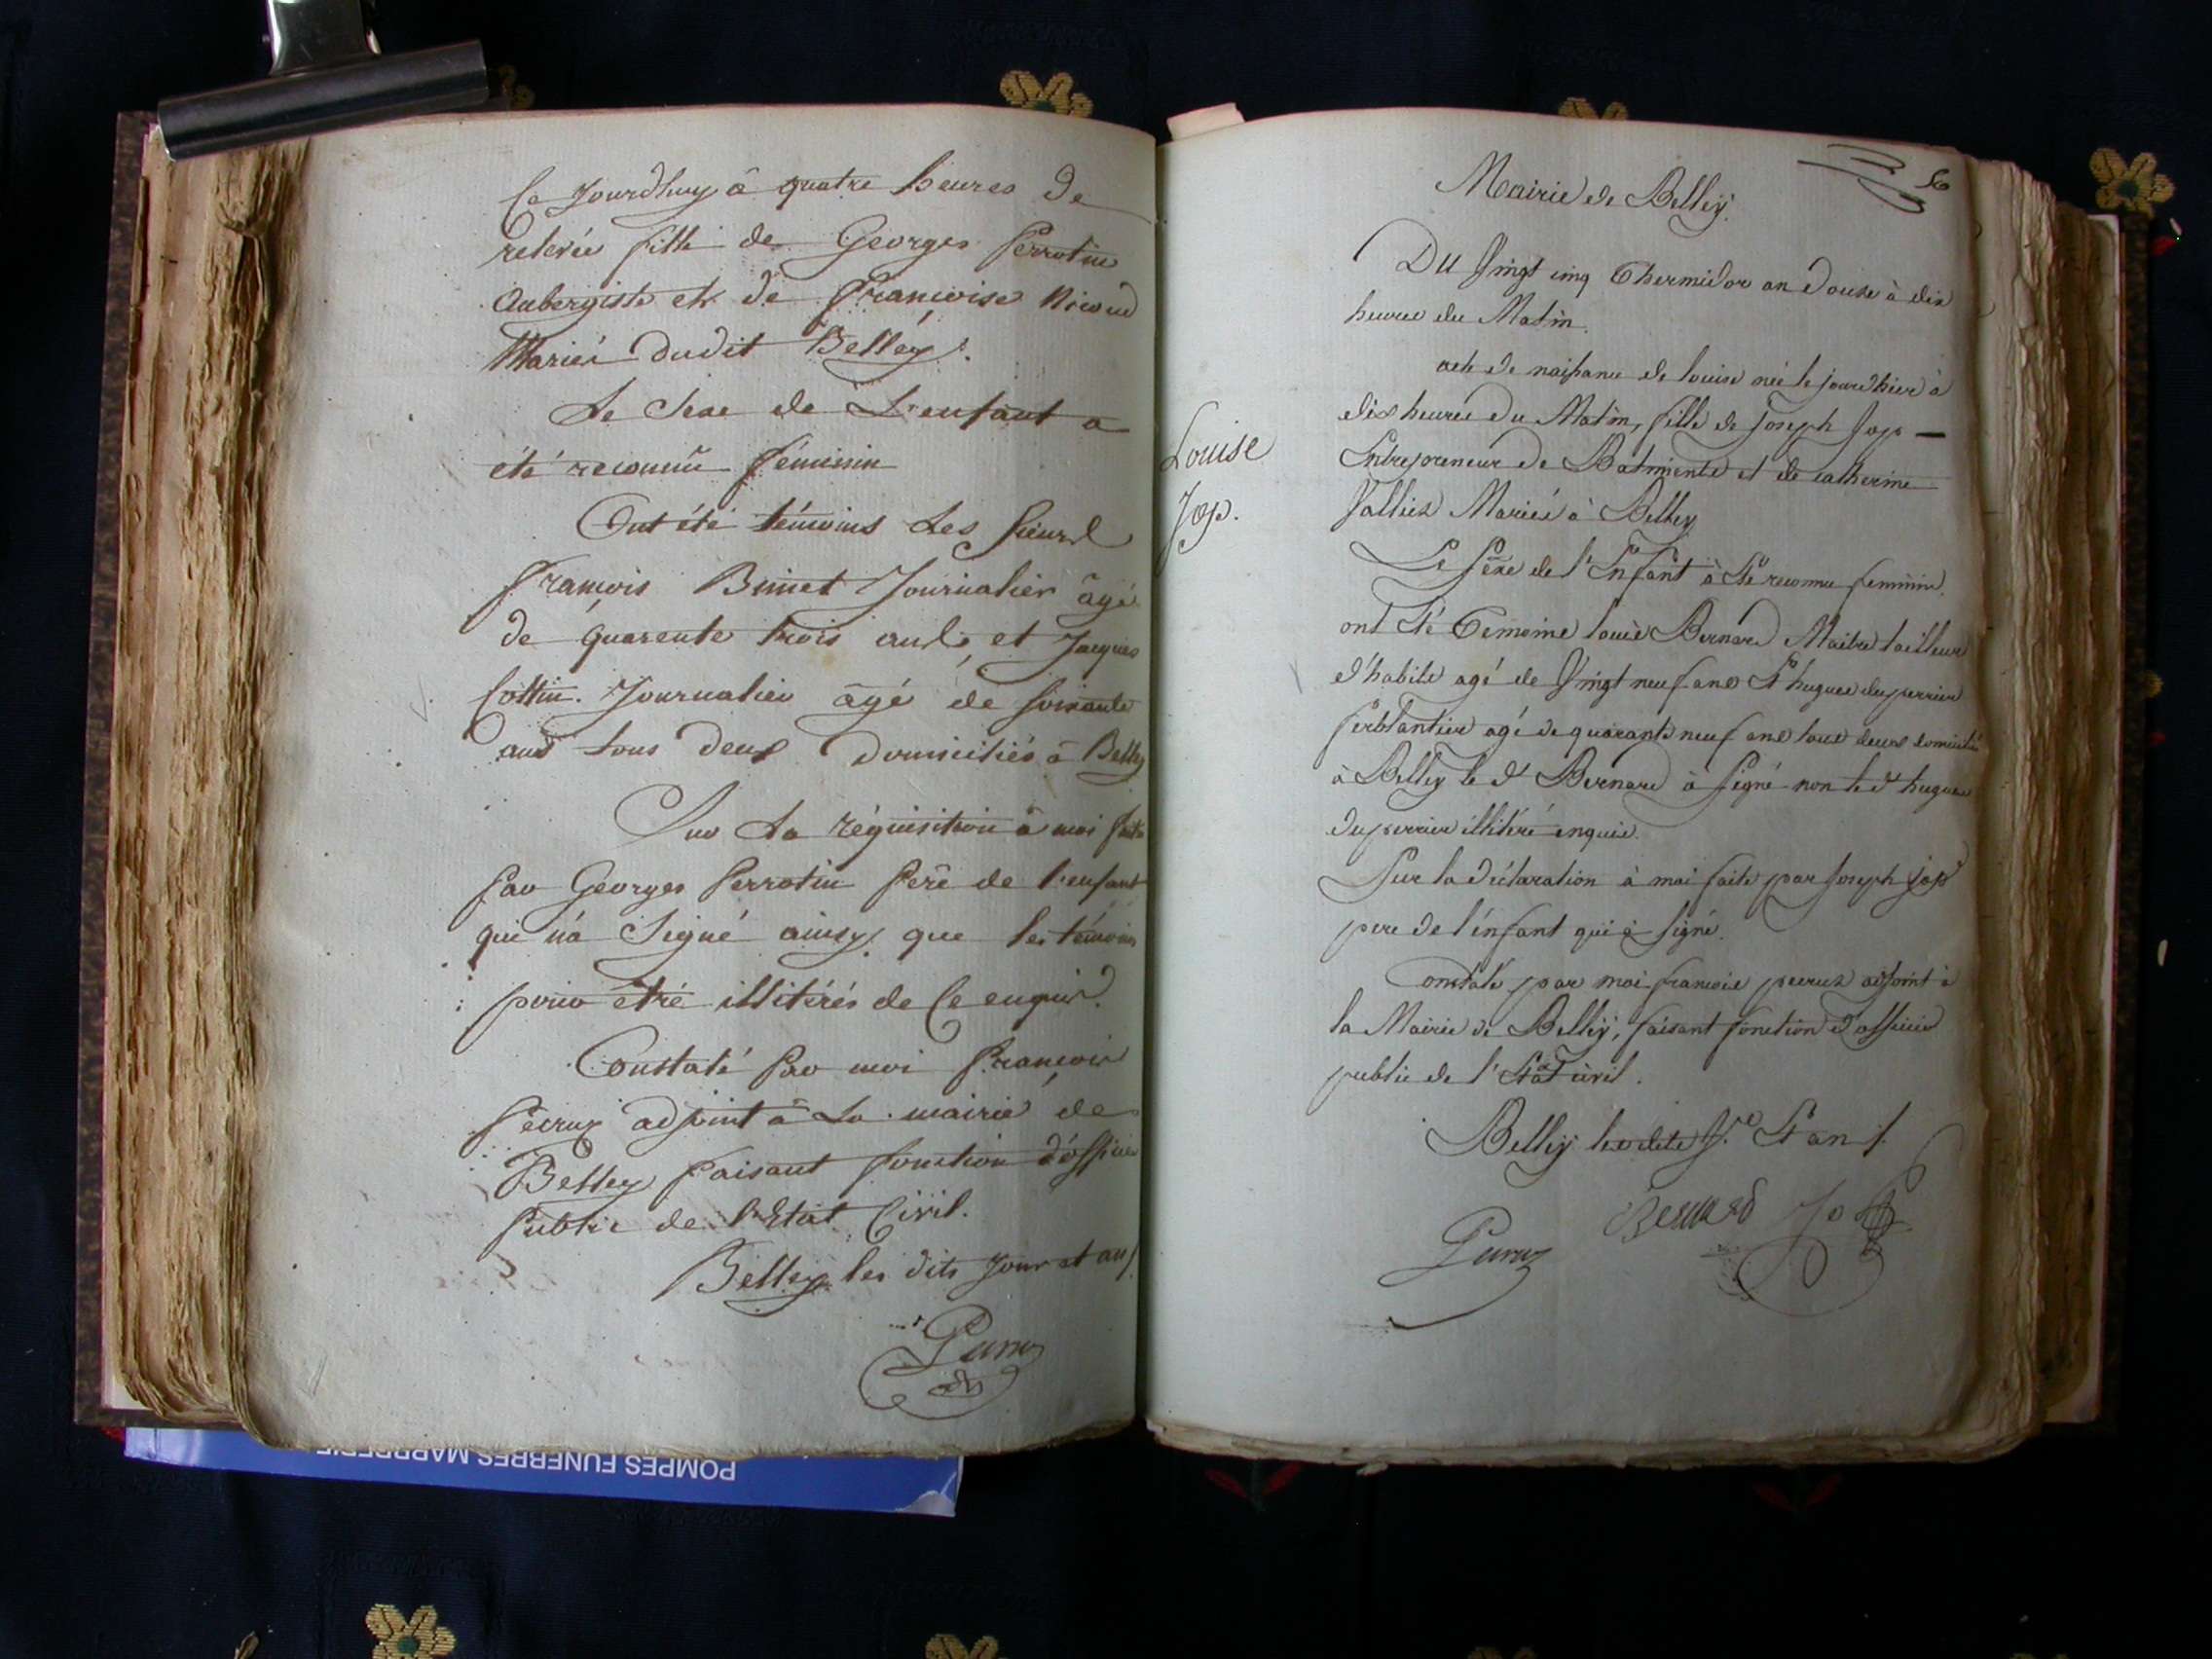 Ce Jourdhuy à quatre heures de
relevée fille de Georges Perrotin
Aubergiste et de Françoise
Mariés dudit Belley.
Le Sexe de L'enfant a
été reconnû féminin
Ont été témoins Les Sieurs
François Binnet Journalier âgé
de quarente trois ans, et Jacques
Cottin Journalier âgé de soixante
ans tous deux Domiciliés à Belley
Sur La réquisition à moi faite
par Georges Perrotin Père de l'enfant
qui n'a Signé ainsy que les témoins
pour être illitérés de Ce enquis.
Constaté Par moi François
Peeruz adjoint à La mairie de
Belley faisant fonction d'officier
Public de l'Etat Civil.
Belley les dits Jour et an
Peeruz
adj
Mairie de Belley.
6
Du Vingt cinq Thermidor an Douze à dix
heures du Matin.
acte de naissance de louise née le jourdhier à
dix heures du Matin, fille de Joseph Jop
Entrepreneur de Batiments et de catherine
Vallier Mariés à Belley
Louise
Jop.
Le sexe de l'Enfant à Eté reconnu feminin.
ont Eté Temoins louis Bernard Maitre tailleur
d'habits agé de Vingt neuf ans Et hugues duperrier
ferblantier agé de quarante neuf ans tous deux domiciliés
à Belley le dt Bernard à signé non le dt hugues
duperrier illitéré enquis.
Sur la déclaration à moi faite par Joseph jop
pere de l'énfant qui à signé.
Constaté par moi françois peeruz adjoint à
la Mairie de Belley, faisant fonction d'officier
public de l'Etat civil.
Belley les dits J.r Et an
Peeruz Bernard Jop
POMPES FUNEBRES MARBRERIE